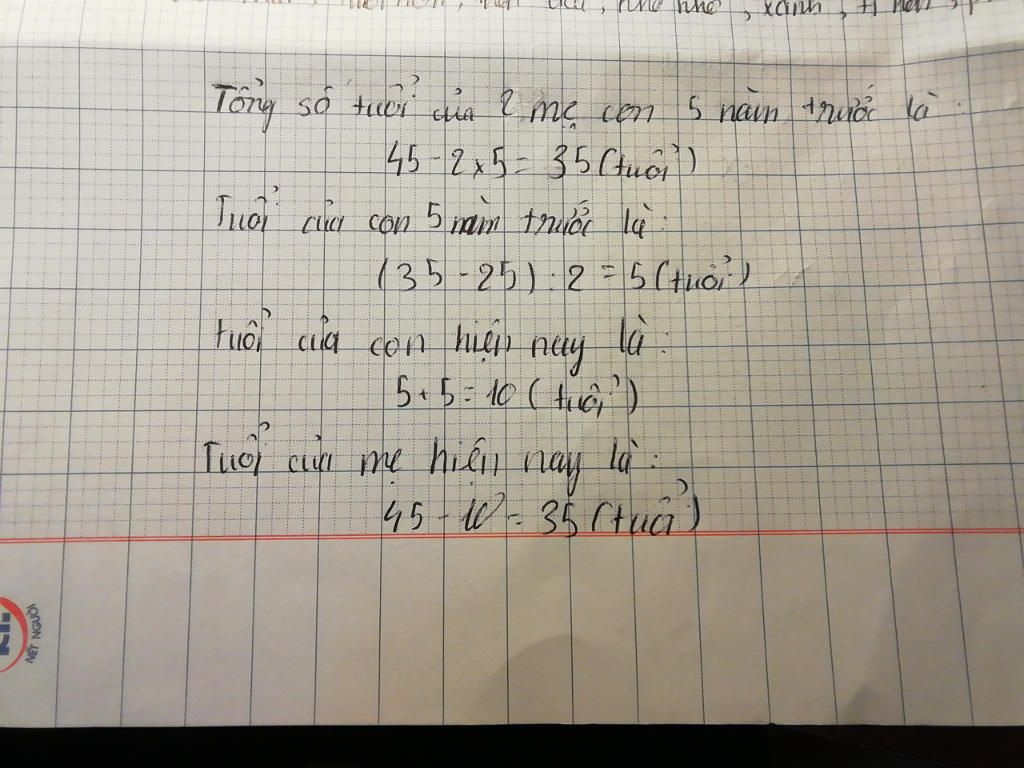 , xanh,
Tổng số tuổi của 2 mẹ con 5 năm trước là:
45 - 2 x 5 = 35 (tuổi)
Tuổi của con 5 năm trước là:
(35 - 25) : 2 = 5 (tuổi)
tuổi của con hiện nay là:
5 + 5 = 10 (tuổi)
Tuổi của mẹ hiện nay là:
45 - 10 = 35 (tuổi)
NÉT NGƯỜI